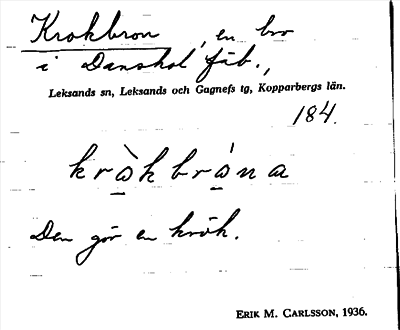 Krokbron, en bro
i Danshol fäb.,
Leksands sn, Leksands och Gagnefs tg, Kopparbergs län.
184.
krò̱kbró̱na
Den gör en krök.
ERIK M. CARLSSON, 1936.